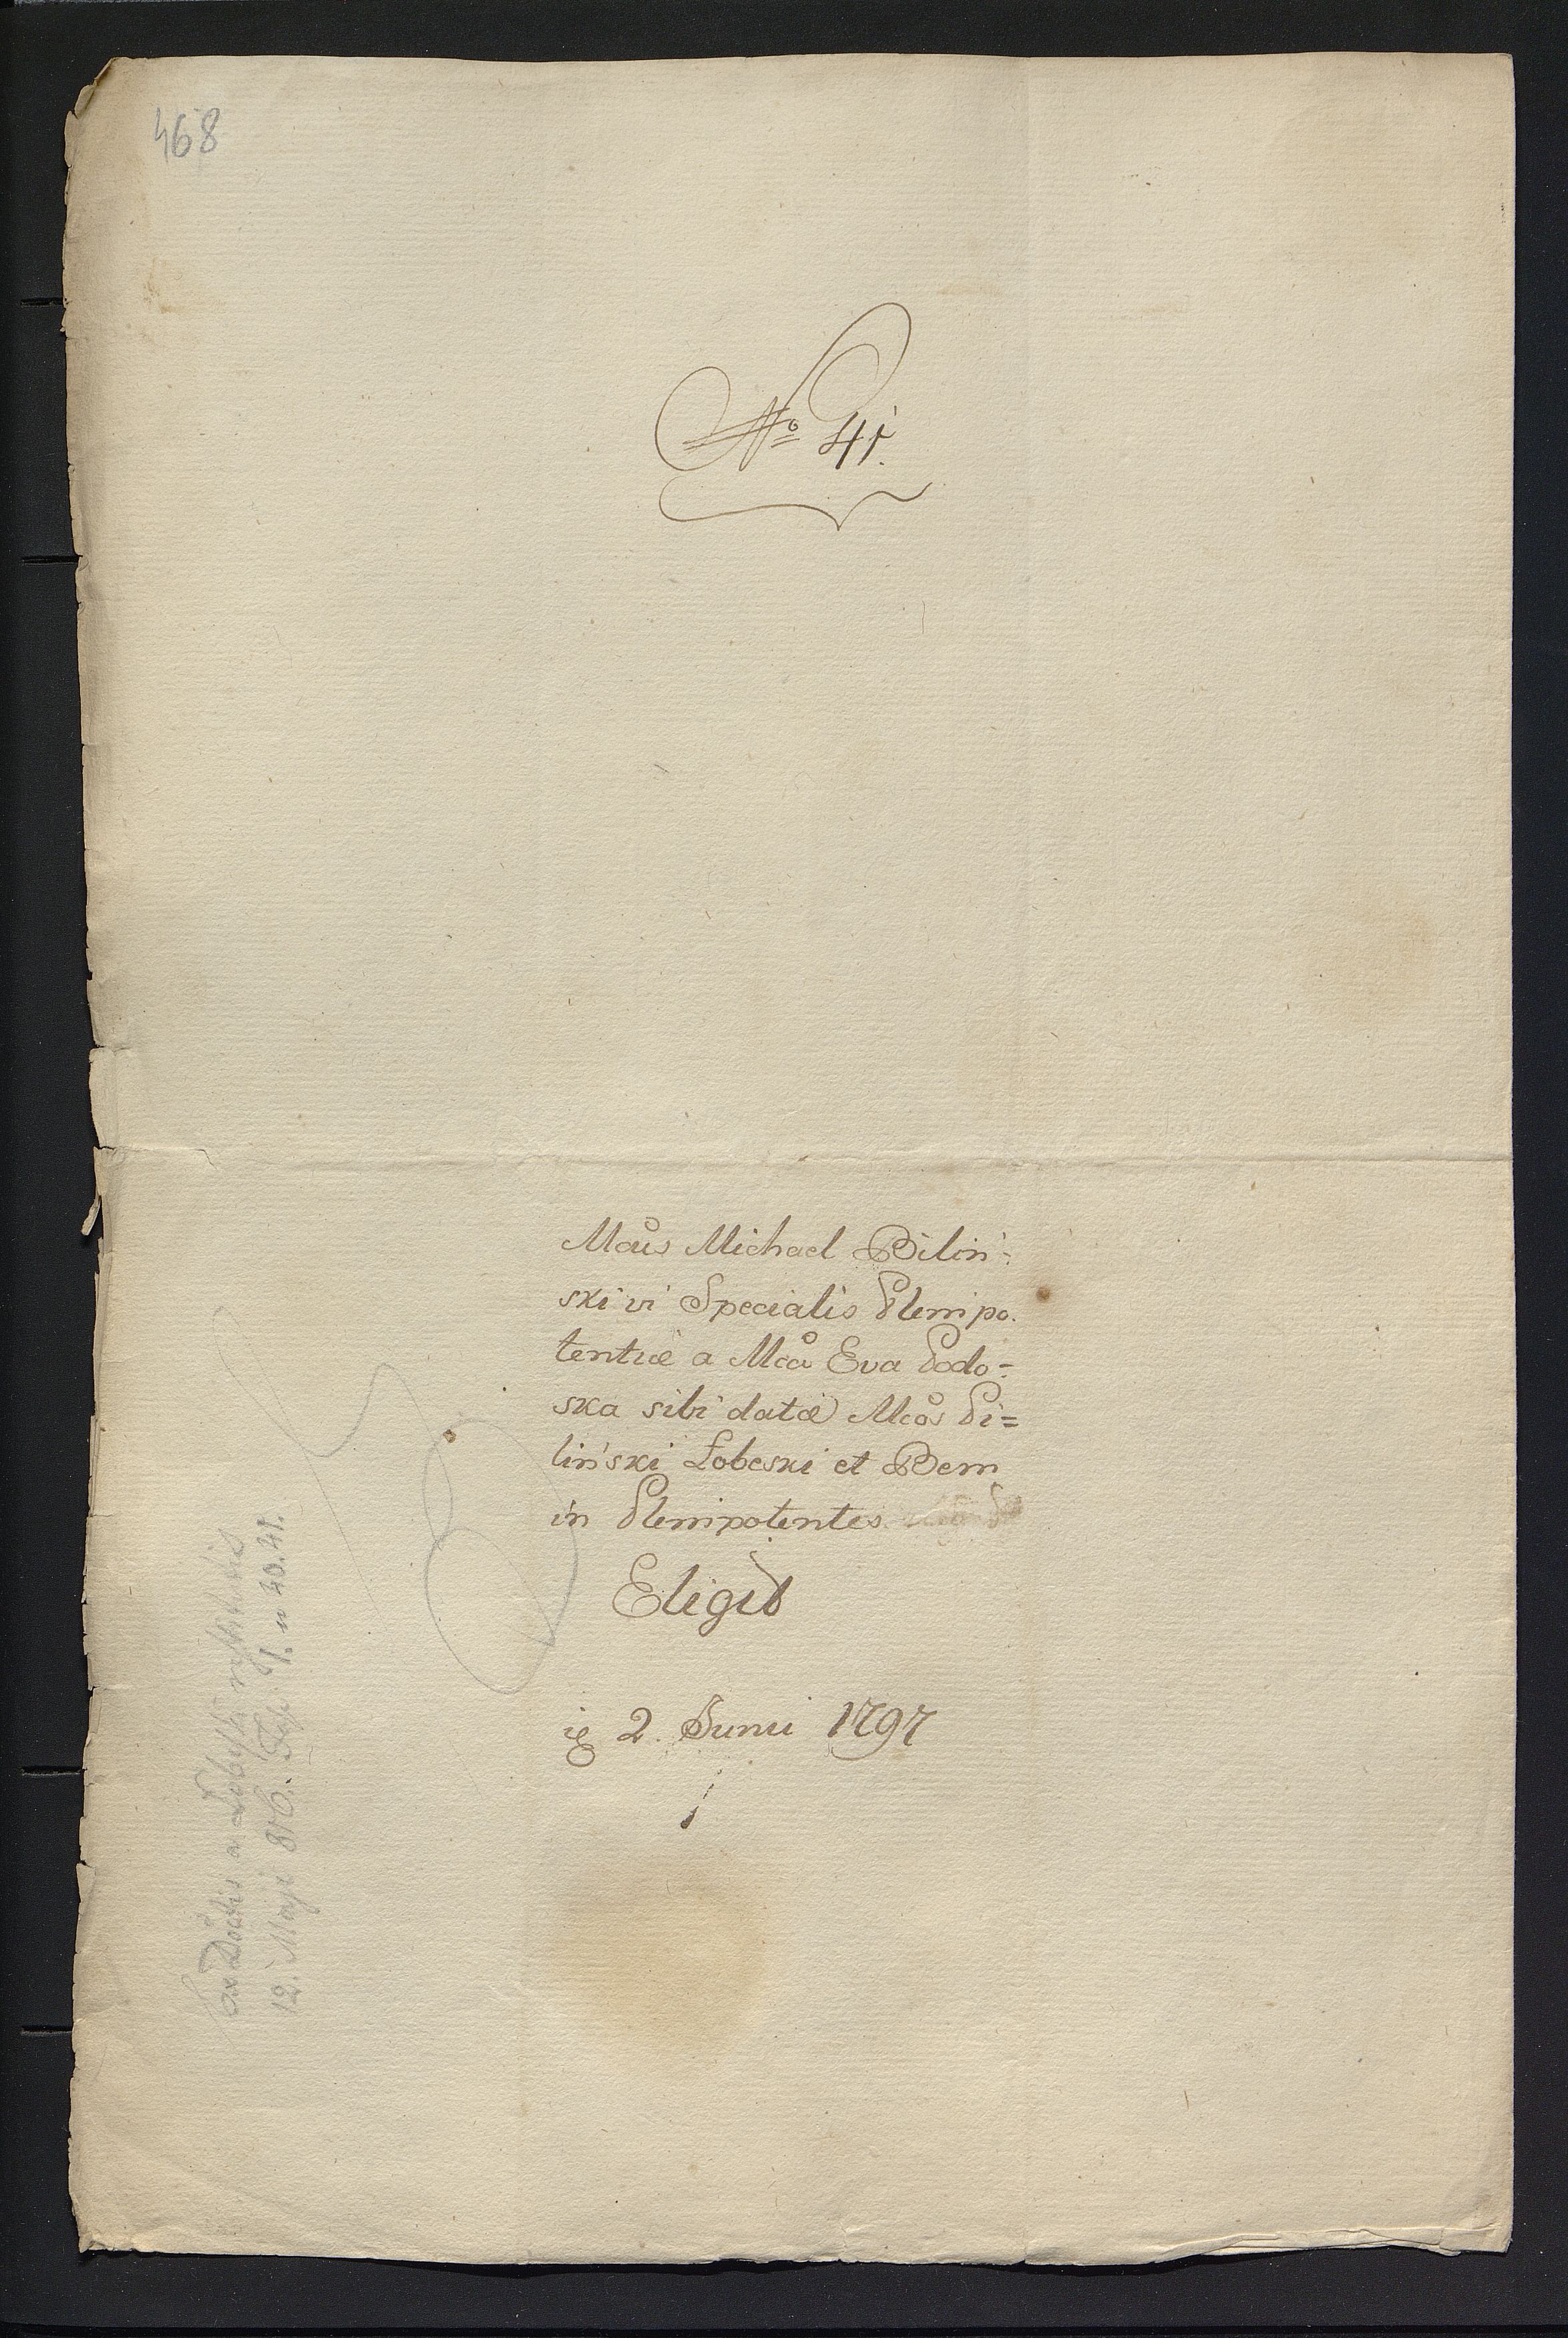 468
No 41.
Mcus Michael Bilin=
ski vi Specialis Plenipo.
tentiæ a Mca Eva Podo=
ska sibi datæ Mcos Pi=
liński Łobeski et Bem
in Plenipotentes
Eligit
2. Junii 1797
12. Maji 816. Fasc. I. n 40. 41.